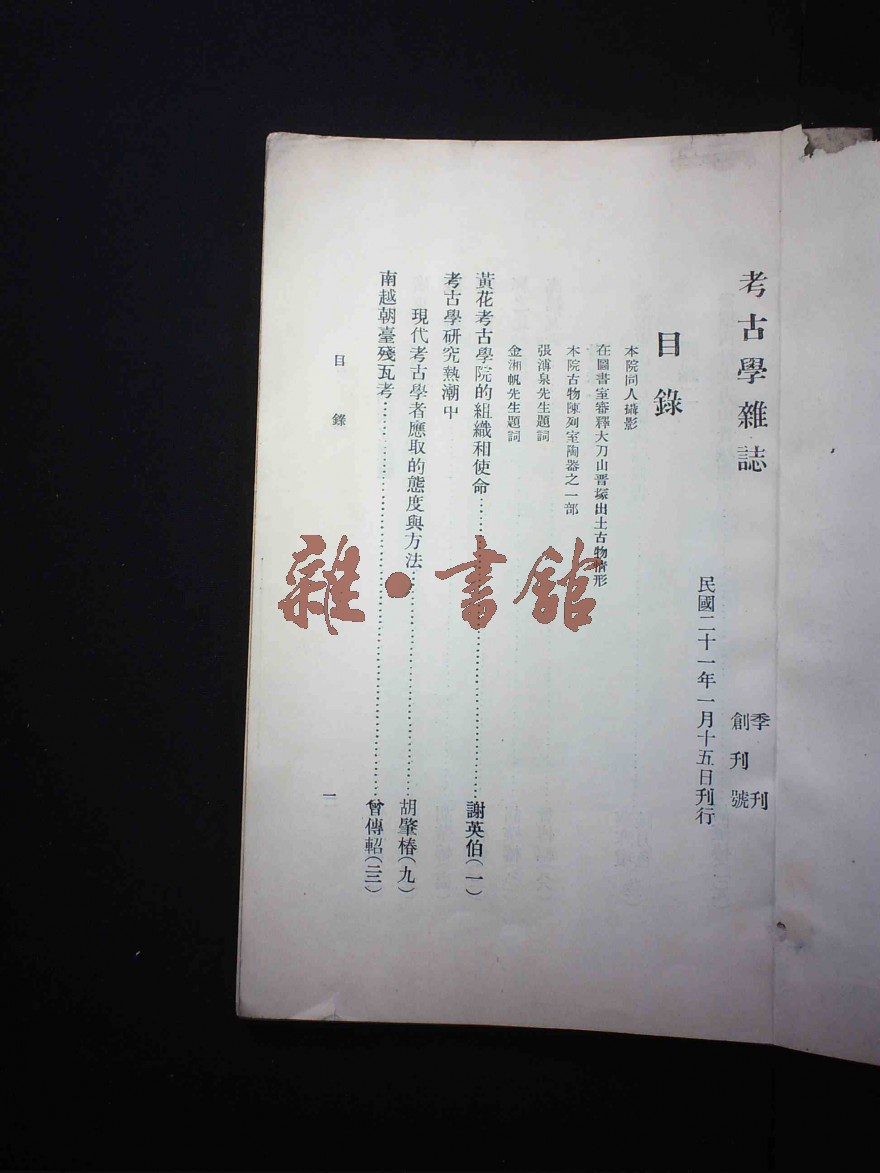 考古學雜誌
季刊
創刊號
民國二十一年一月十五日刊行
目錄
本院同人攝影
在圖書室審釋大刀山晋塚出土古物情形
本院古物陳列室陶器之一部
張溥泉先生題詞
金湘帆先生題詞
黃花考古學院的組織和使命……謝英伯(一)
考古學研究熱潮中
現代考古學者應取的態度與方法……胡肇椿(九)
南越朝臺殘瓦考……曾傳軺(二三)
目錄
一
雜·書館